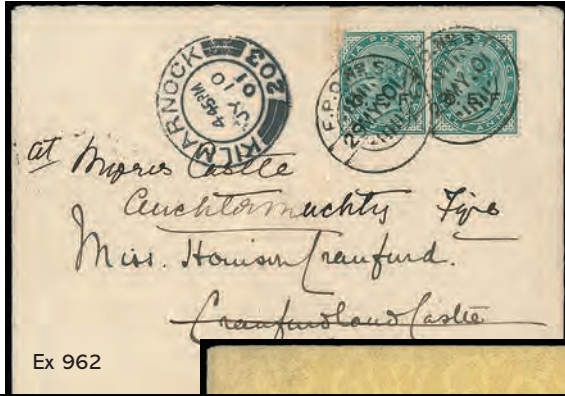 KILMARNOCK
4.45PM
JY 10
01
203
F.P.O. No. 5
29 MY 01
at Myres Castle
Auchtermuchty Fife
Miss. Houison Craufurd.
Craufurdland Castle
Ex 962